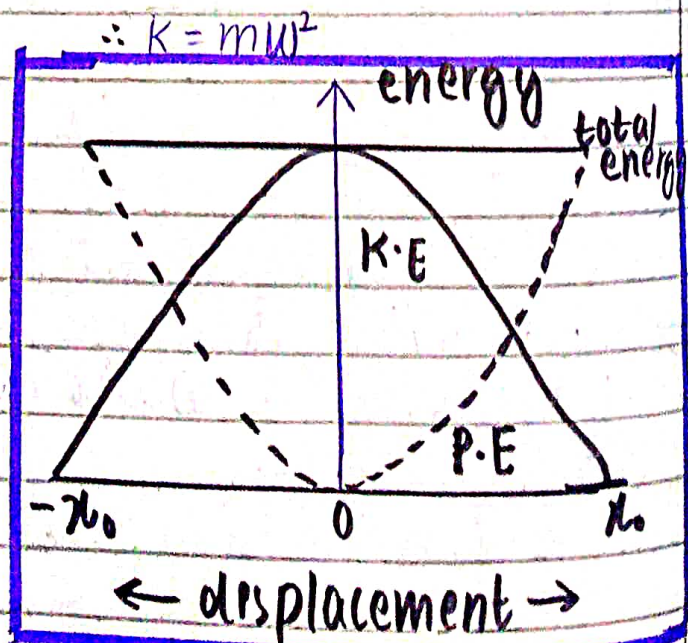 ∴ K = mω²
energy
total
energy
K·E
P·E
-x₀ 0 x₀
← displacement →